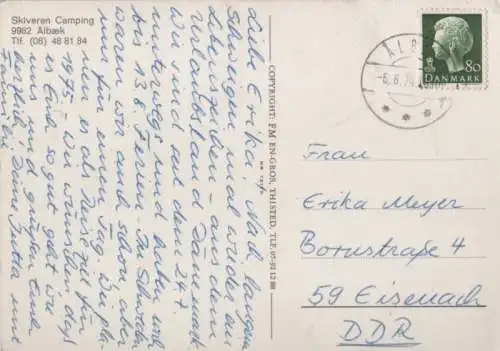 Skiveren Camping
9982 Ålbæk
Tlf. (08) 48 81 84
Liebe Erika! Nach langem
Schweigen mal wieder ein
Lebenszeichen – aus dem
Urlaubsland Dänemark.
Wir sind seit dem 24.7.
unterwegs und haben noch
bis 13.8. Ferien. In Schweden
waren wir auch schon, aber
nur für einen Tag. Du
nen es als Reiseziel für
1975. Wir wünschen daß
es Euch so gut geht wie
uns und grüßen Euch
herzlich, Deine Jutta und
Familie
COPYRIGHT: FM EN-GROS, THISTED, TLF. 07-92 12 88
ÅLB
-6.8.74
80
DANMARK
Frau
Erika Meyer
Bornstraße 4
59 Eisenach
DDR